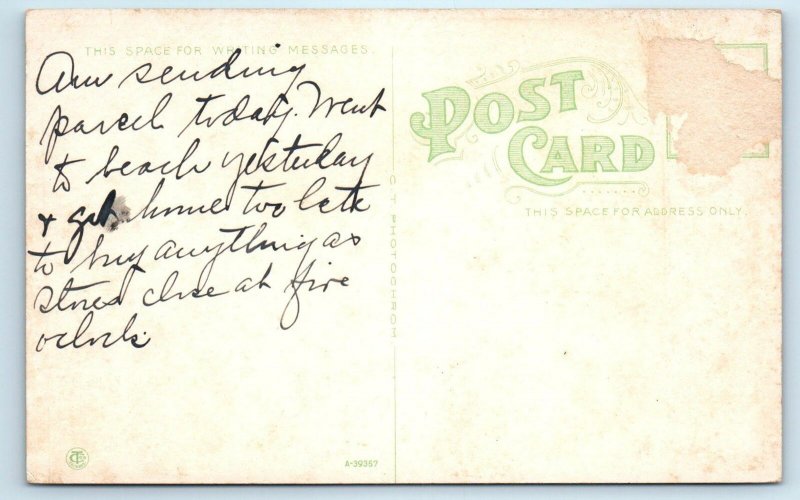 THIS SPACE FOR WRITING MESSAGES.
Am sending
parcel today. Went
to beach yesterday
& got home too late
to buy anything as
stores close at five
o'clock.
C. T. PHOTOCHROM
POST
CARD
THIS SPACE FOR ADDRESS ONLY.
A-39357